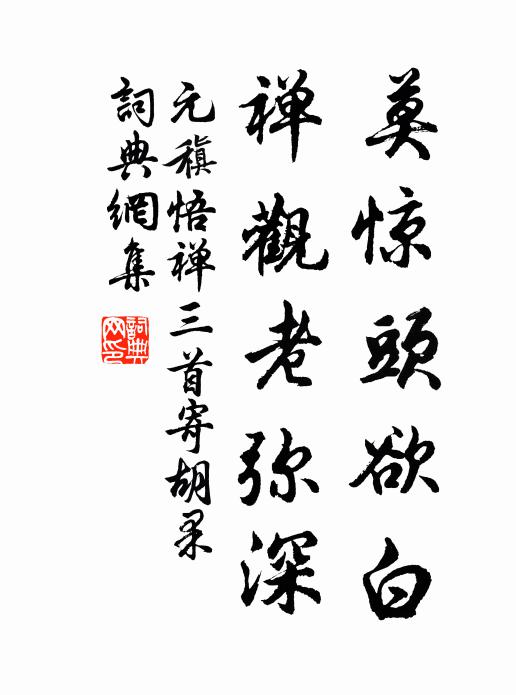 莫惊頭欲白
禅觀老弥深
元稹悟禅三首寄胡杲
詞典網集
詞典网印